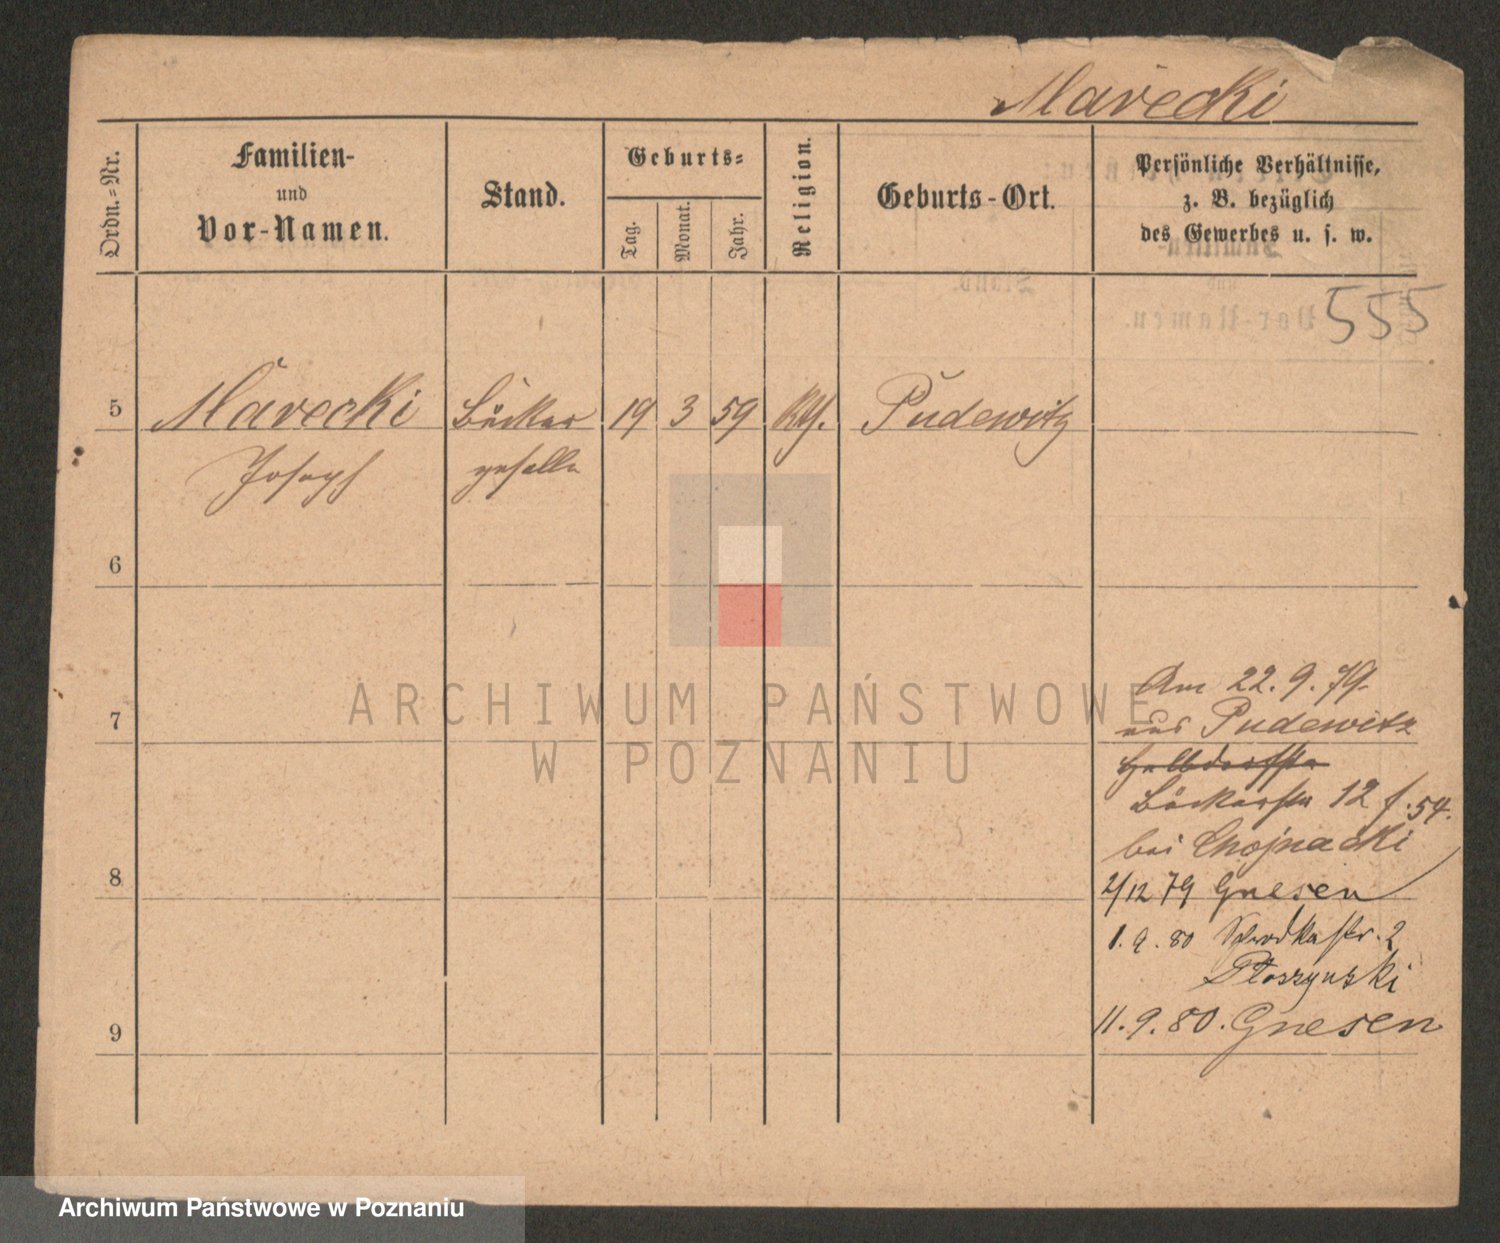 Marecki
Ordn.-Nr.
Familien-
und
Vor-Namen.
Stand.
Geburts-
Tag.
Monat.
Jahr.
Religion.
Geburts-Ort.
Persönliche Verhältnisse,
z. B. bezüglich
des Gewerbes u. s. w.
555
5 Marecki Bäcker 19 3 59 Kth. Pudewitz
Joseph geselle
6
7
8
9
Am 22. 9. 79.
aus Pudewitz
Halbdorfstr
Bäckerstr 12 f. 54.
bei Chojnacki
2/12 79 Gnesen
1. 9. 80 Schrodkastr. 2
Ploszynski
11. 9. 80. Gnesen
ARCHIWUM PAŃSTWOWE
W POZNANIU
Archiwum Państwowe w Poznaniu